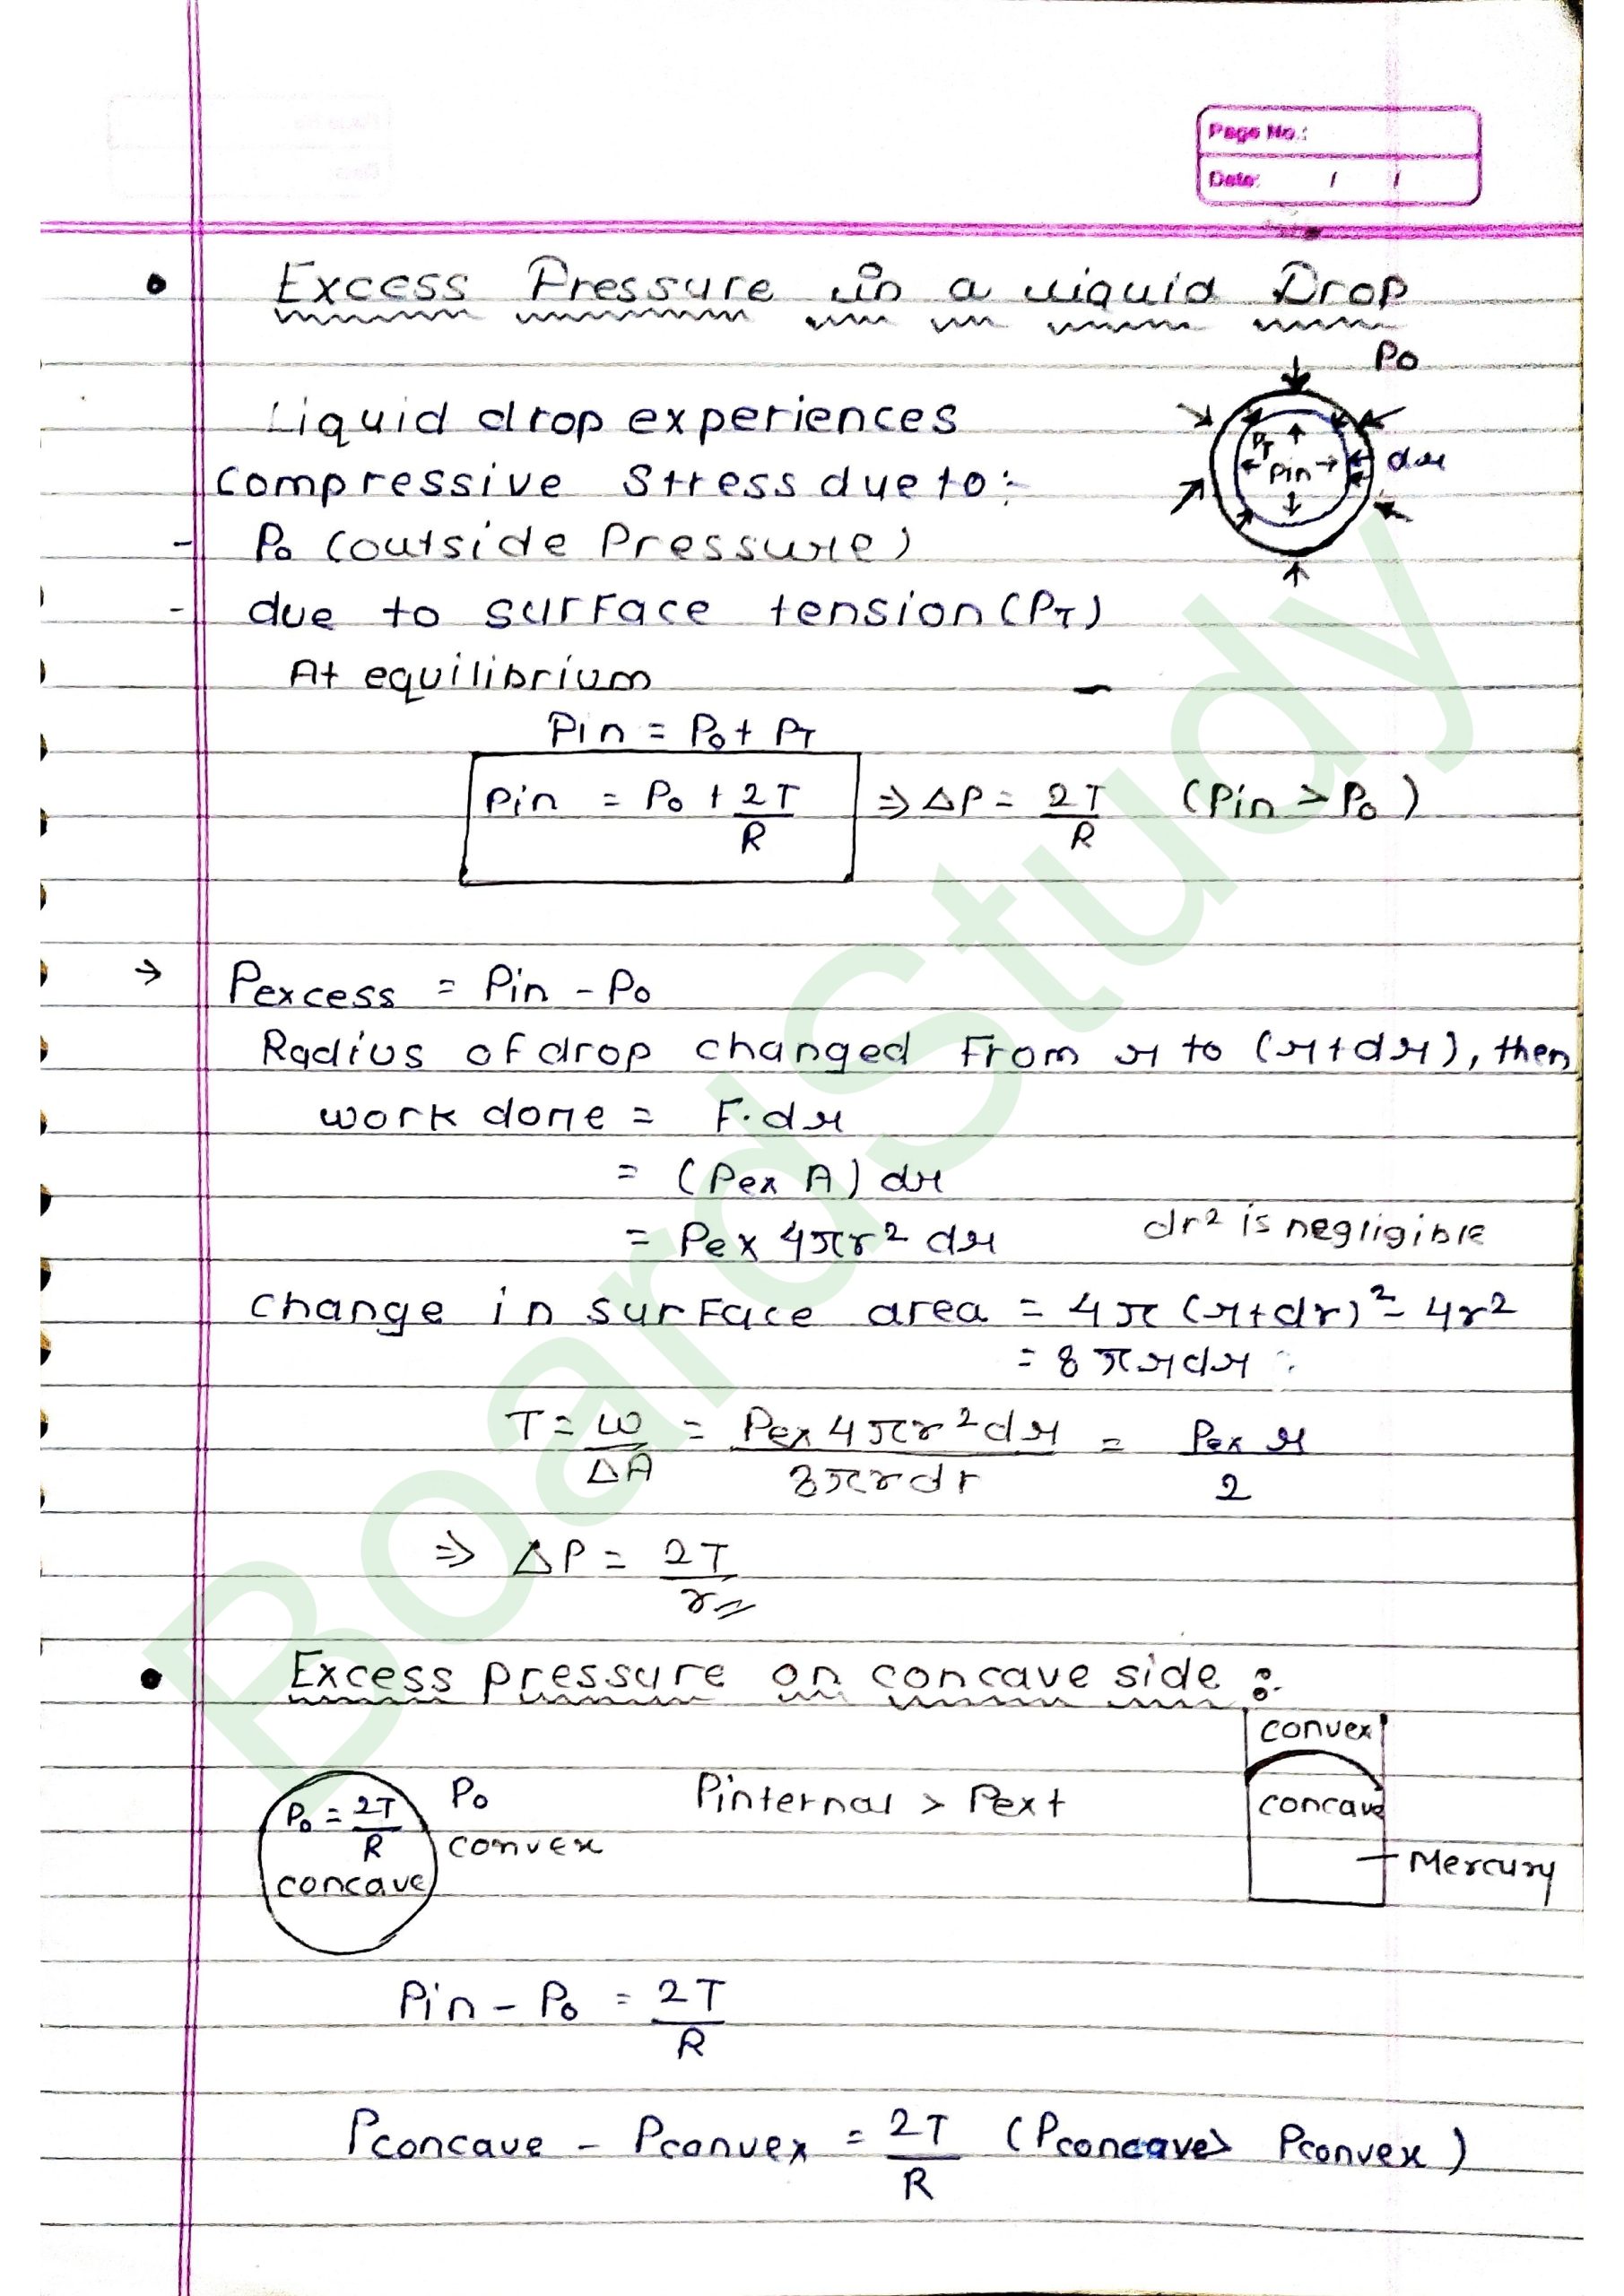 Page No.:
Date: / /
Excess Pressure in a Liquid Drop
Po
Liquid drop experiences
PT
Pin
dr
Compressive Stress due to:
- Po (outside Pressure)
- due to surface tension (PT)
At equilibrium
Pin = Po + PT
Pin = Po + 2T/R ⇒ ΔP = 2T/R (Pin > Po)
→ Pexcess = Pin - Po
Radius of drop changed From r to (r+dr), then
work done = F.dr
= (Pex A) dr
= Pex 4πr² dr dr² is negligible
change in surface area = 4π(r+dr)² - 4r²
= 8πrdr
T = W/ΔA = Pex 4πr²dr/8πrdr = Pex r/2
⇒ ΔP = 2T/r
Excess pressure on concave side :
convex
Po = 2T/R Po Pinternal > Pext concave
convex
concave Mercury
Pin - Po = 2T/R
Pconcave - Pconvex = 2T/R (Pconcave > Pconvex)
BoardStudy